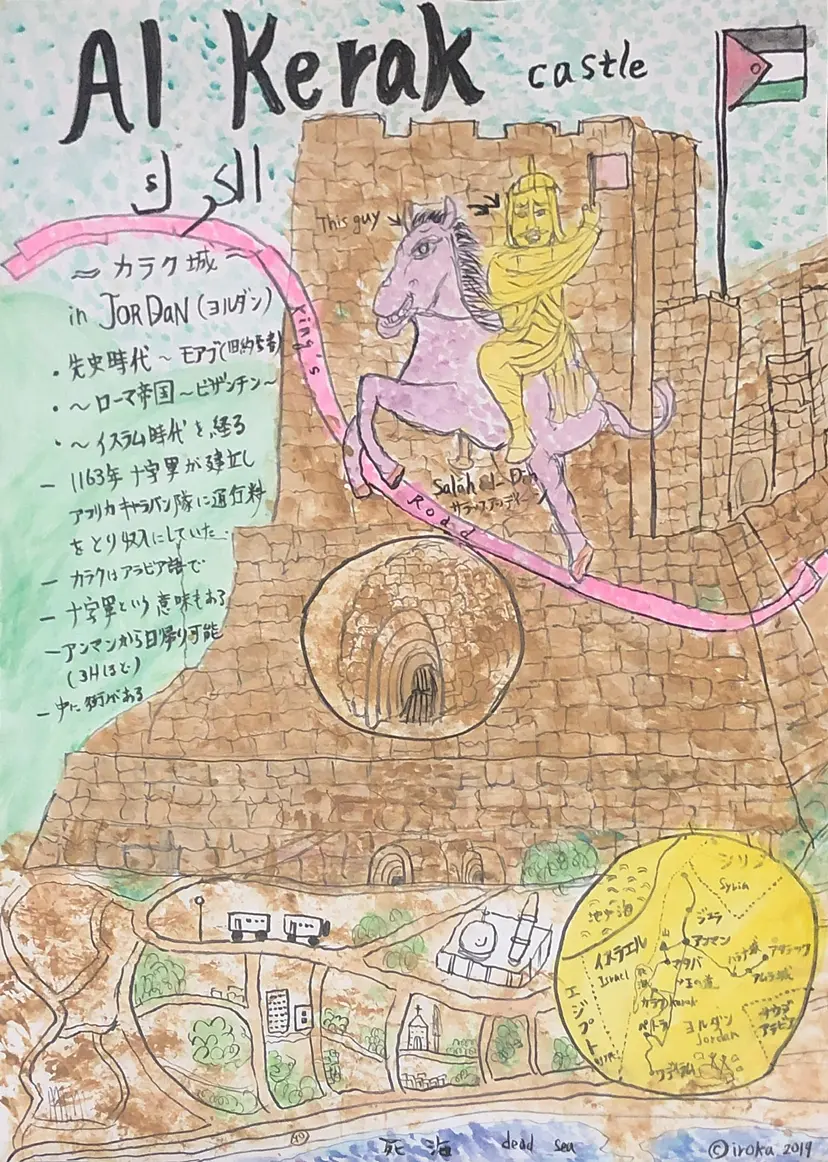 Al Kerak castle
الكرك
This guy
～カラク城～
in JORDAN (ヨルダン)
・先史時代～モアブ(旧約聖書)
・～ローマ帝国～ビザンチン～
・～イスラム時代を経る
－ 1163年十字軍が建立し
アフリカキャラバン隊に通行料
をとり収入にしていた
－ カラクはアラビア語で
－ 十字軍という意味もある
－ アンマンから日帰り可能
(3Hほど)
－ 中に街がある
King's Road
Salah al-Din
サラーフ アッディーン
シリア
Syria
地中海
ジェラ
アンマン
イスラエル
Israel
マダバ
ハラナ城
アズラック
アムラ城
王の道
カラク Karak
エジプト
ペトラ
ヨルダン
Jordan
サウジ
アラビア
ワディラム
死海 dead sea
©iroka 2019